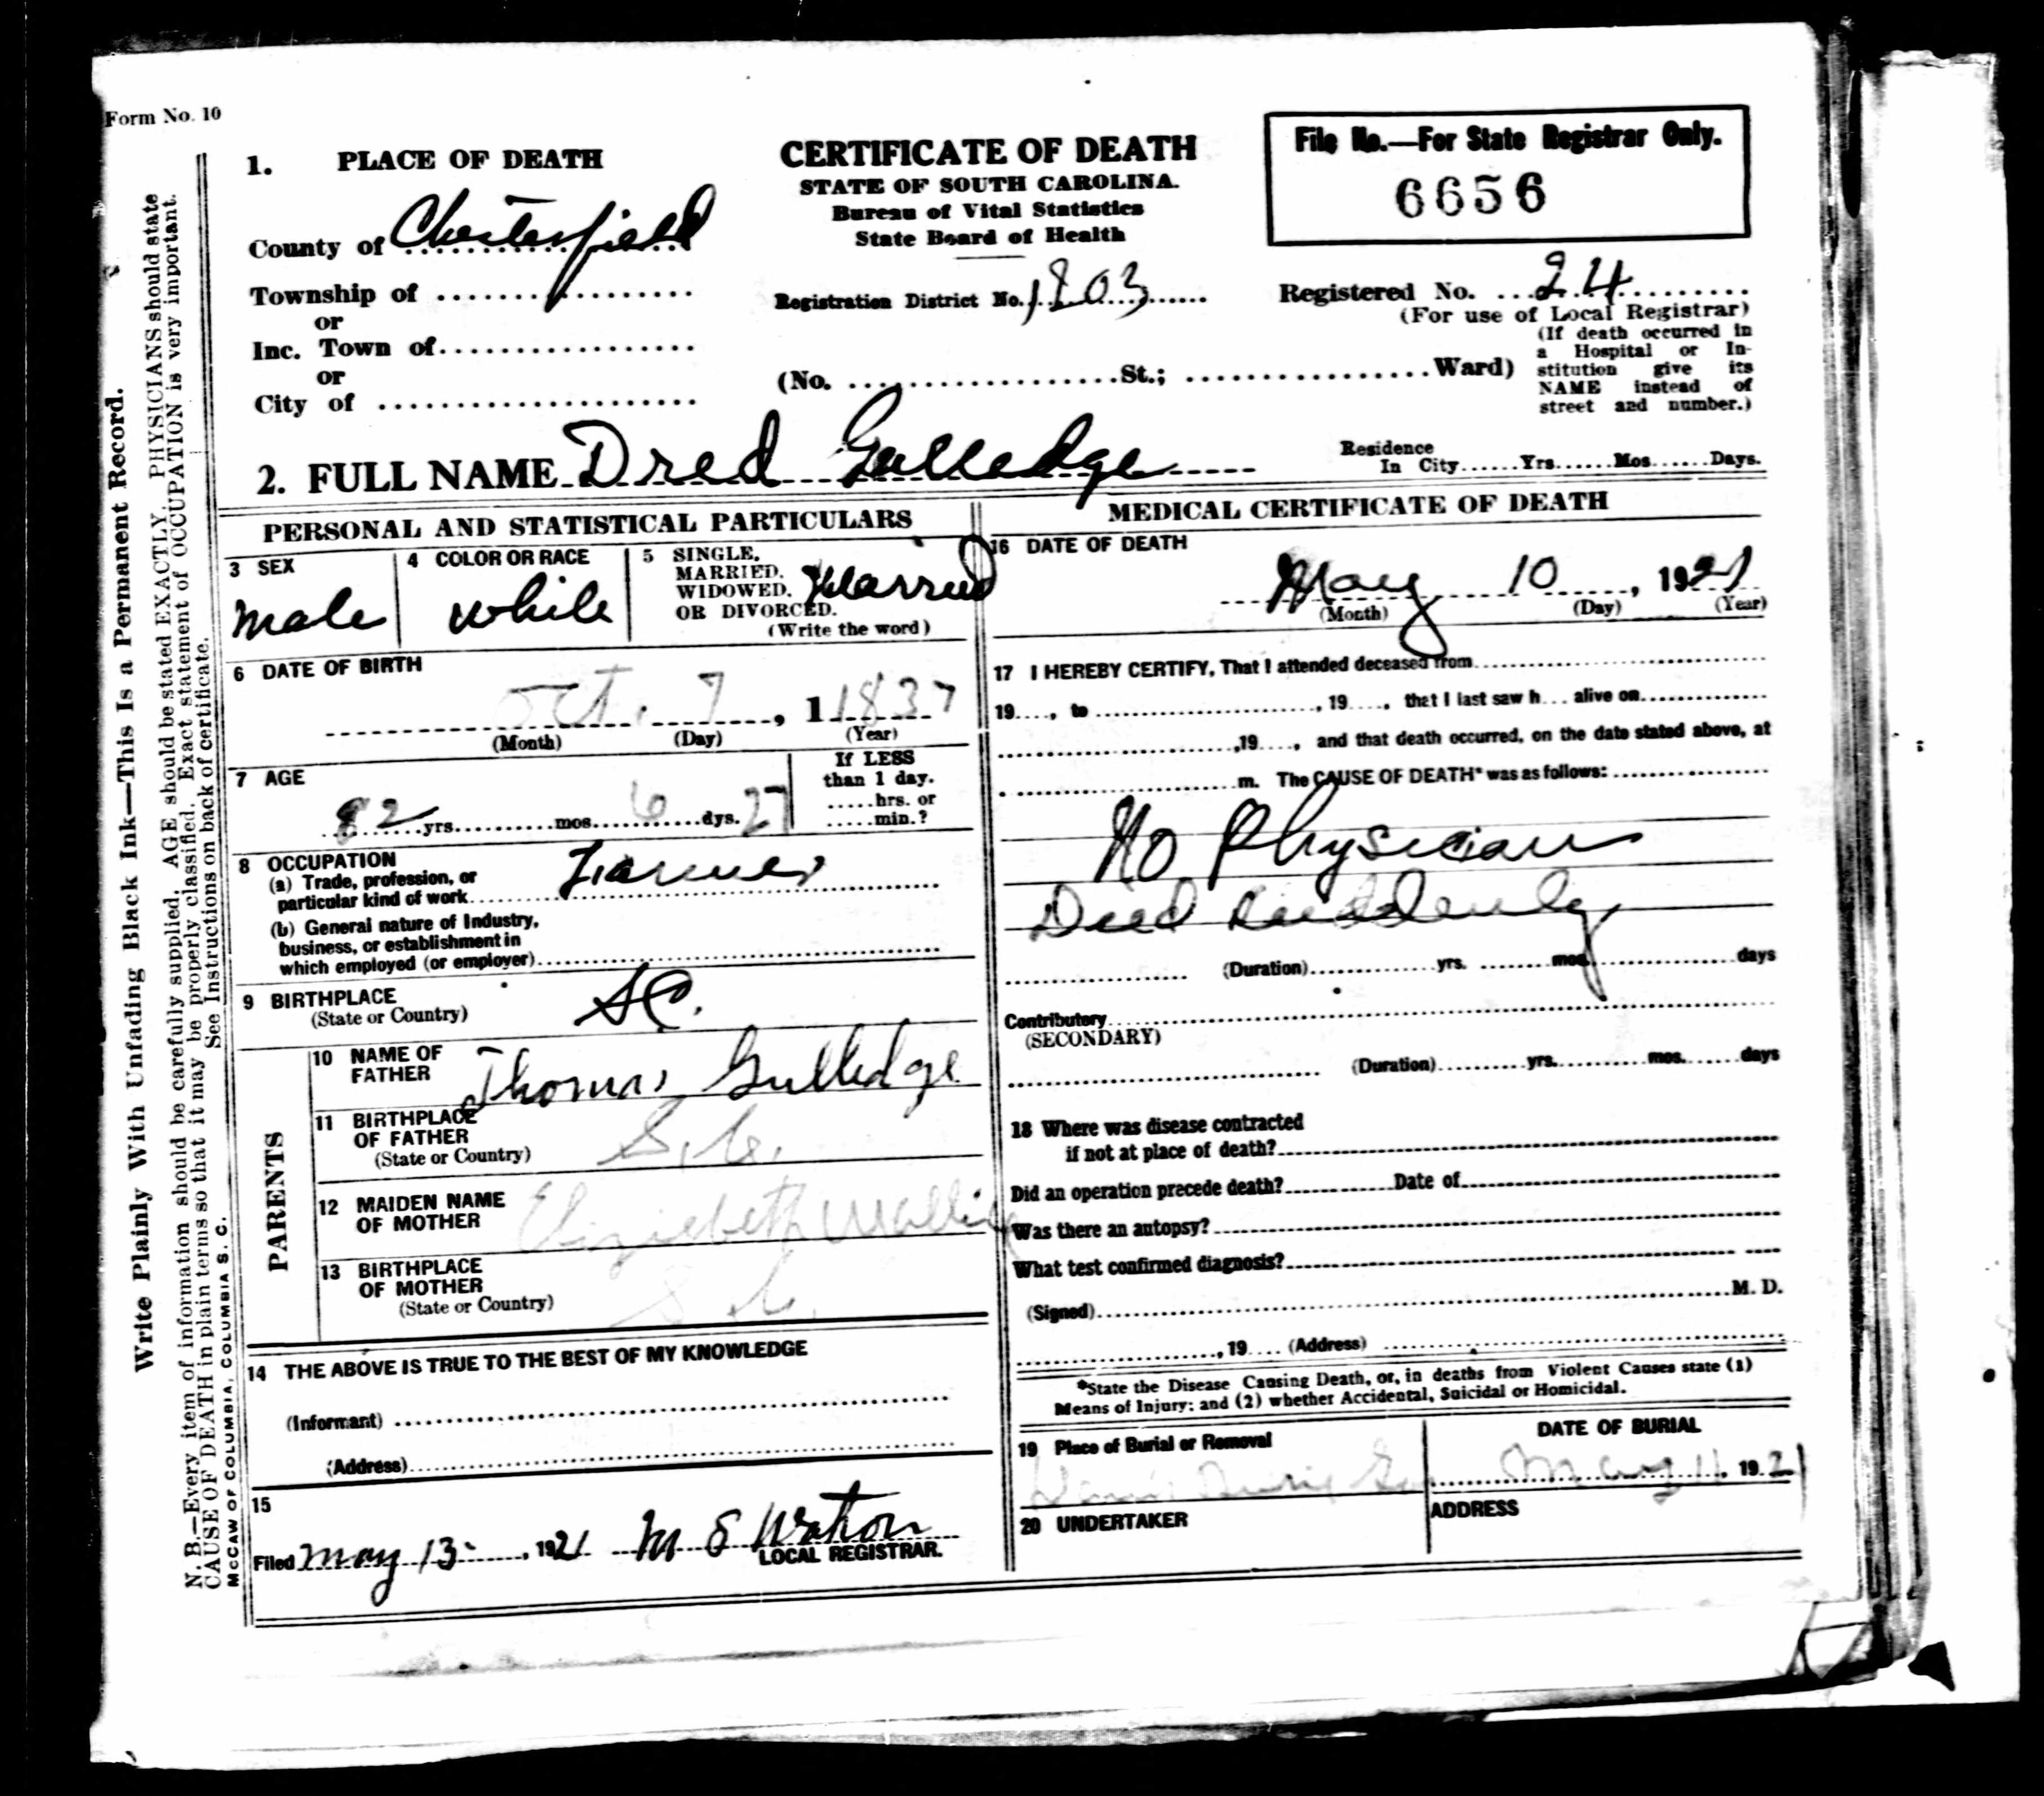 Form No. 10
1. PLACE OF DEATH
County of Chesterfield
Township of
or
Inc. Town of
or
City of
CERTIFICATE OF DEATH
STATE OF SOUTH CAROLINA.
Bureau of Vital Statistics
State Board of Health
Registration District No. 1203
(No. St.; Ward)
File No.—For State Registrar Only.
6656
Registered No. 24
(For use of Local Registrar)
(If death occurred in
a Hospital or In-
stitution give its
NAME instead of
street and number.)
2. FULL NAME Dred Gulledge
Residence
In City......Yrs......Mos......Days.
PERSONAL AND STATISTICAL PARTICULARS
3 SEX
male
4 COLOR OR RACE
white
5 SINGLE,
MARRIED,
WIDOWED,
OR DIVORCED.
(Write the word)
Married
6 DATE OF BIRTH
Oct. 7, 1 1837
(Month) (Day) (Year)
7 AGE
82 yrs. mos. 6 dys. 27
If LESS
than 1 day.
.....hrs. or
.....min.?
8 OCCUPATION
(a) Trade, profession, or
particular kind of work
Farmer
(b) General nature of Industry,
business, or establishment in
which employed (or employer)
9 BIRTHPLACE
(State or Country)
SC.
PARENTS
10 NAME OF
FATHER
Thomas Gulledge
11 BIRTHPLACE
OF FATHER
(State or Country)
S. C.
12 MAIDEN NAME
OF MOTHER
Elizabeth
13 BIRTHPLACE
OF MOTHER
(State or Country)
S. C.
14 THE ABOVE IS TRUE TO THE BEST OF MY KNOWLEDGE
(Informant)
(Address)
15
Filed May 13, 1921 M S Watson
LOCAL REGISTRAR.
MEDICAL CERTIFICATE OF DEATH
16 DATE OF DEATH
May 10, 1921
(Month) (Day) (Year)
17 I HEREBY CERTIFY, That I attended deceased from
19...., to , 19...., that I last saw h... alive on
,19...., and that death occurred, on the date stated above, at
m. The CAUSE OF DEATH* was as follows:
No Physician
Died Suddenly
(Duration) yrs. mos. days
Contributory
(SECONDARY)
(Duration) yrs. mos. days
18 Where was disease contracted
if not at place of death?
Did an operation precede death? Date of
Was there an autopsy?
What test confirmed diagnosis?
(Signed) M. D.
, 19.... (Address)
*State the Disease Causing Death, or, in deaths from Violent Causes state (1)
Means of Injury; and (2) whether Accidental, Suicidal or Homicidal.
19 Place of Burial or Removal
DATE OF BURIAL
May 11, 1921
20 UNDERTAKER
ADDRESS
Write Plainly With Unfading Black Ink—This Is a Permanent Record.
N. B.—Every item of information should be carefully supplied. AGE should be stated EXACTLY. PHYSICIANS should state
CAUSE OF DEATH in plain terms so that it may be properly classified. Exact statement of OCCUPATION is very important.
See Instructions on back of certificate.
McCAW OF COLUMBIA, COLUMBIA S. C.